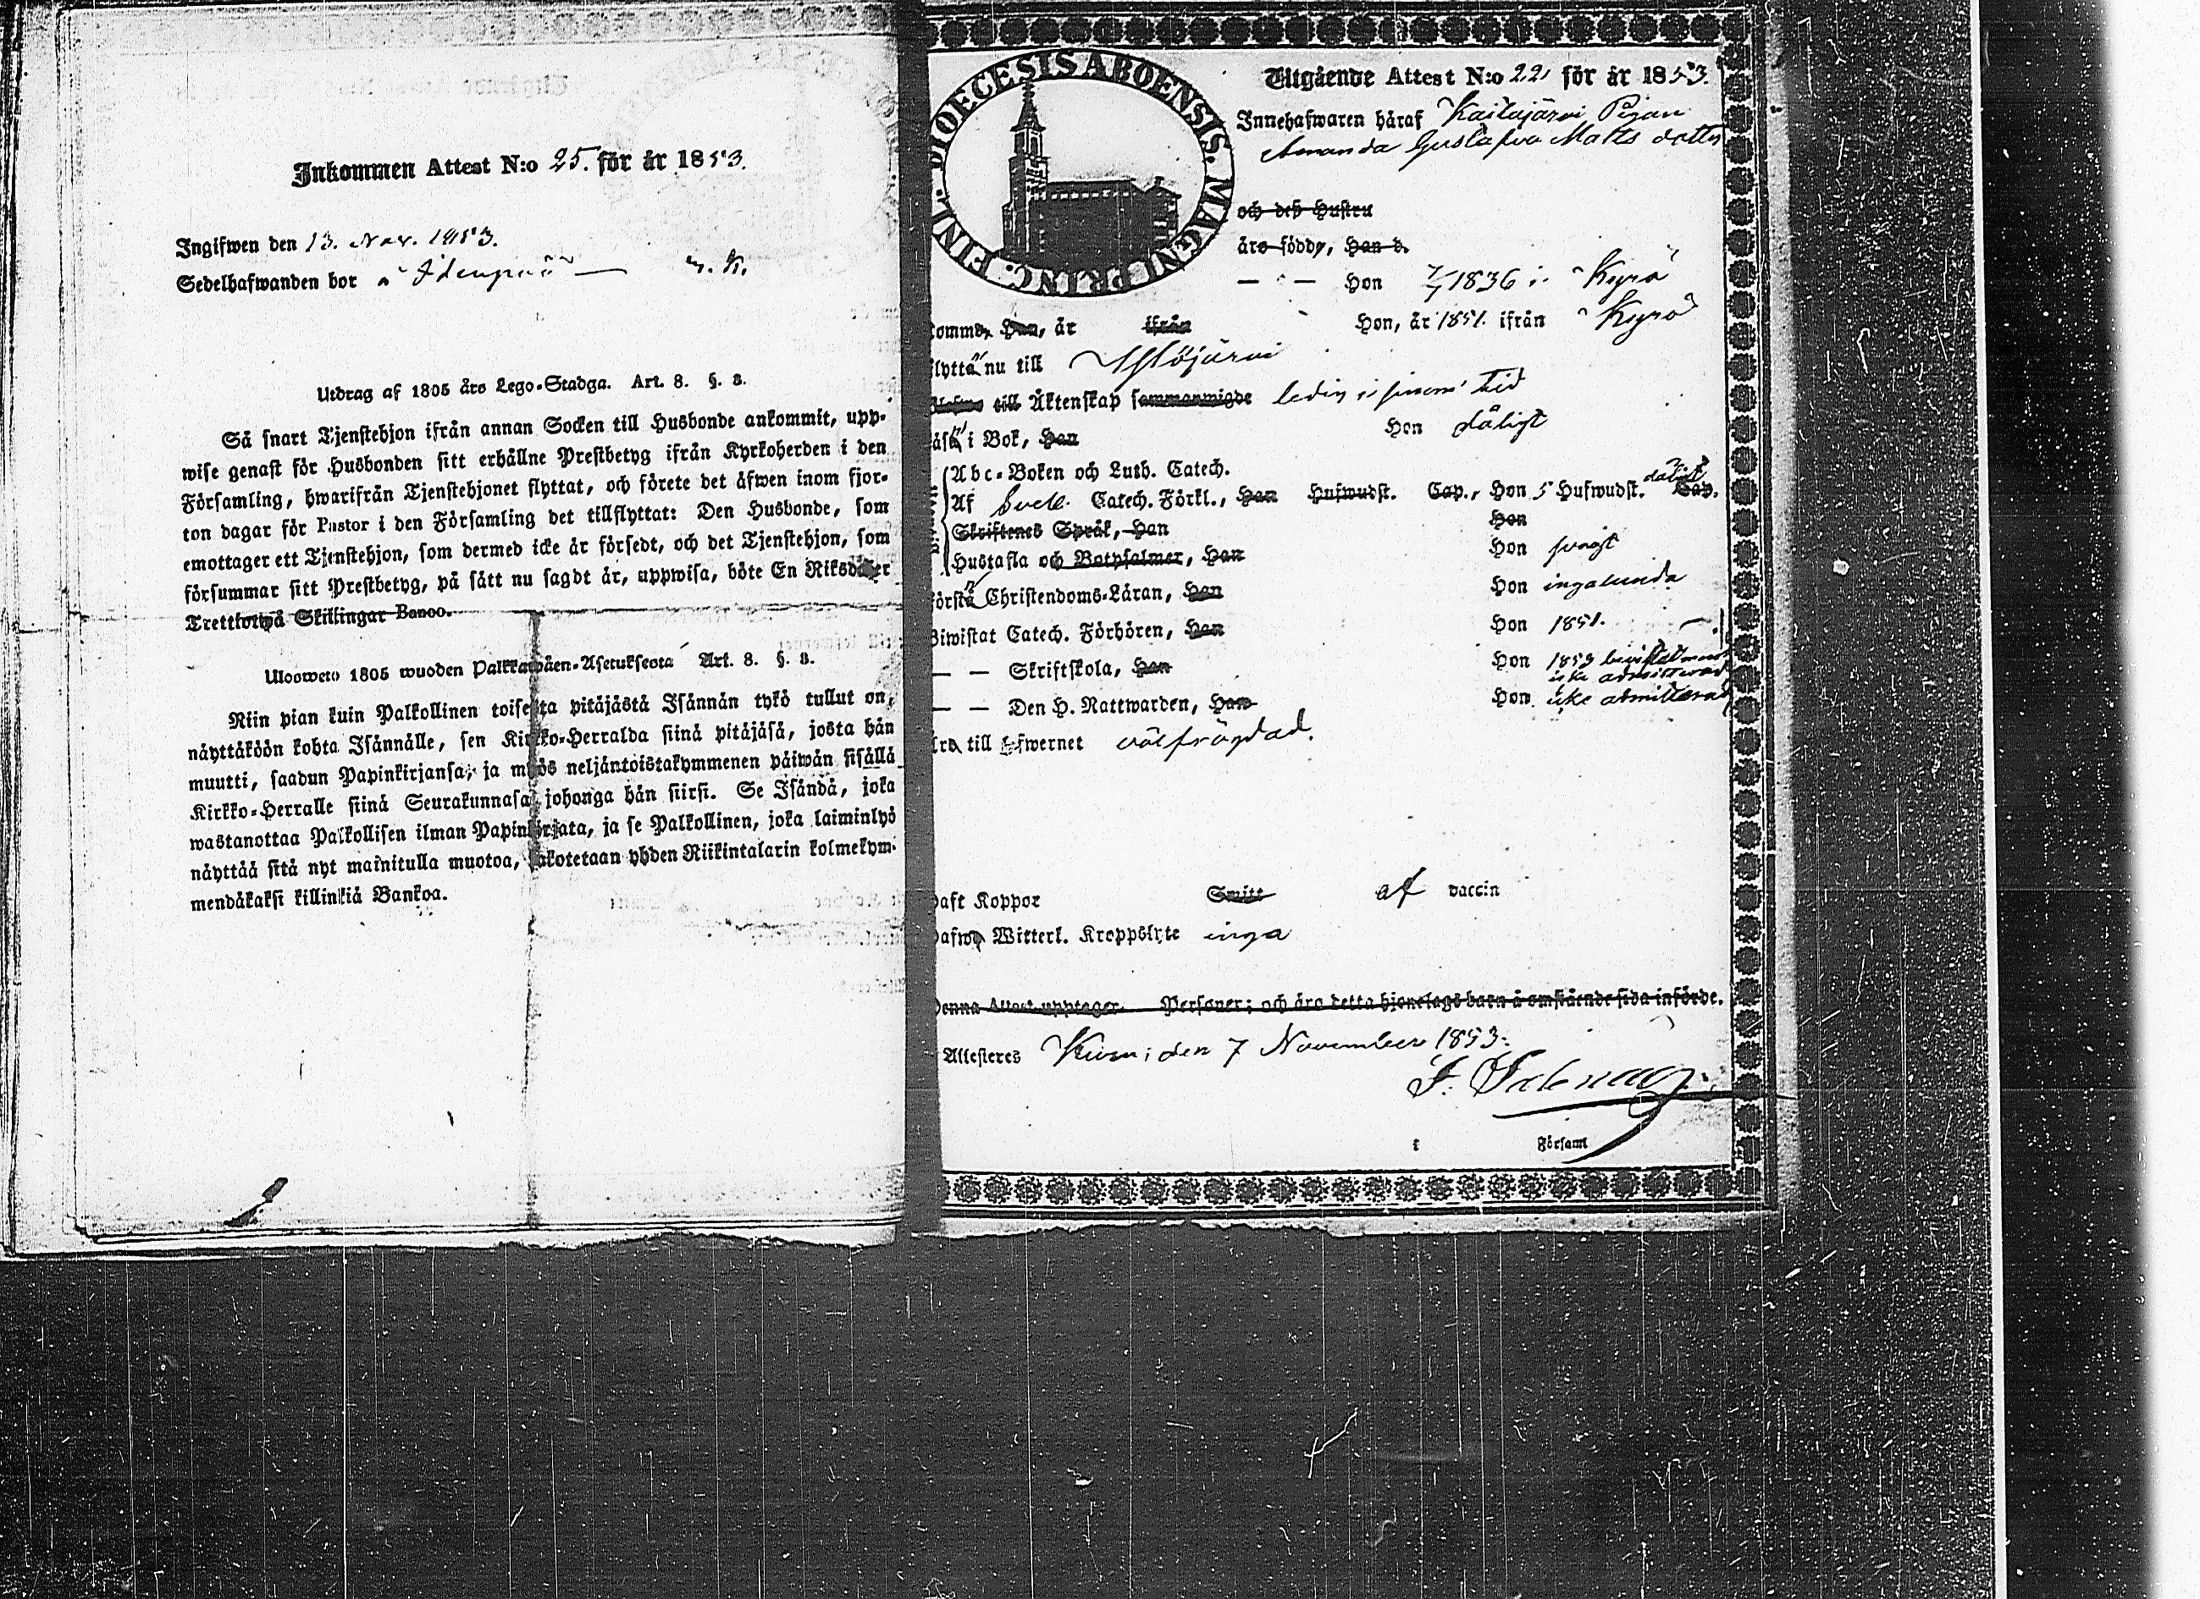 Inkommen Attest N:o 25. för år 1853.
Ingifwen den 13. Nov. 1853.
Sedelhafwanden bor
Utdrag af 1805 års Lego-Stadga. Art. 8. §. 8.
Så snart Tjenstehjon ifrån annan Socken till Husbonde ankommit, upp-
wise genast för Husbonden sitt erhållne Prestbetyg ifrån Kyrkoherden i den
Församling, hwarifrån Tjenstehjonet flyttat, och förete det äfwen inom fjor-
ton dagar för Pastor i den Församling det tillflyttat: Den Husbonde, som
emottager ett Tjenstehjon, som dermed icke är försedt, och det Tjenstehjon, som
försummar sitt Prestbetyg, på sätt nu sagdt är, uppwisa, böte En Riksdaler
Trettiotvå Skillingar Banco.
Ulosweto 1805 wuoden Palkkawäen-Asetuksesta Art. 8. §. 8.
Niin pian kuin Palkollinen toisesta pitäjästä Isännän tykö tullut on,
näyttäköön kohta Isännälle, sen Kirkko-Herralda siinä pitäjäsä, josta hän
muutti, saadun Papinkirjansa, ja myös neljäntoistakymmenen päiwän sisällä
Kirkko-Herralle siinä Seurakunnasa, johonga hän siirsi. Se Isändä, joka
wastanottaa Palkollisen ilman Papinkirjata, ja se Palkollinen, joka laiminlyö
näyttää sitä nyt mainitulla muotoa, sakotetaan yhden Riikintalarin kolmekym-
mendäkaksi killinkiä Bankoa.
DIOECESIS ABOENSIS. MAGNI PRINC. FINL.
Utgående Attest N:o 22, för år 1853.
Innehafwaren häraf Kaitajärvi Pigan
Amanda Gustafva Matts dotter
och deß Hustru
äro födde, Han d.
— " — Hon 1836 i Kyrö
komme, Han, år ifrån Hon, år 1851. ifrån Kyrö
flytta nu till Ylöjärvi
till Äktenskap sammanwigde ledig i sinom tid
i Bok, Han Hon dåligt
Abc-Boken och Luth. Catech.
Af Sveb. Catech. Förkl., Han Hufwudst. Cap., Hon 5 Hufwudst. dåligt Cap.
Skriftenes Språk, Han Hon
Hustafla och Botpsalmer, Han Hon svagt
Förstå Christendoms-Läran, Han Hon ingalunda
Biwistat Catech. Förhören, Han Hon 1851.
— — Skriftskola, Han Hon 1853 bevistat men
icke admitterad
— — Den H. Nattwarden, Han Hon icke admitterad
till lefwernet välfrägdad.
Haft Koppor Smitt af vaccin
Hafwa Witterl. Kroppslyte inga
Denna Attest upptager Personer; och äro detta hjonelags barn å omstående sida införde.
Attesteres Kuru; den 7 November 1853.
i Församl